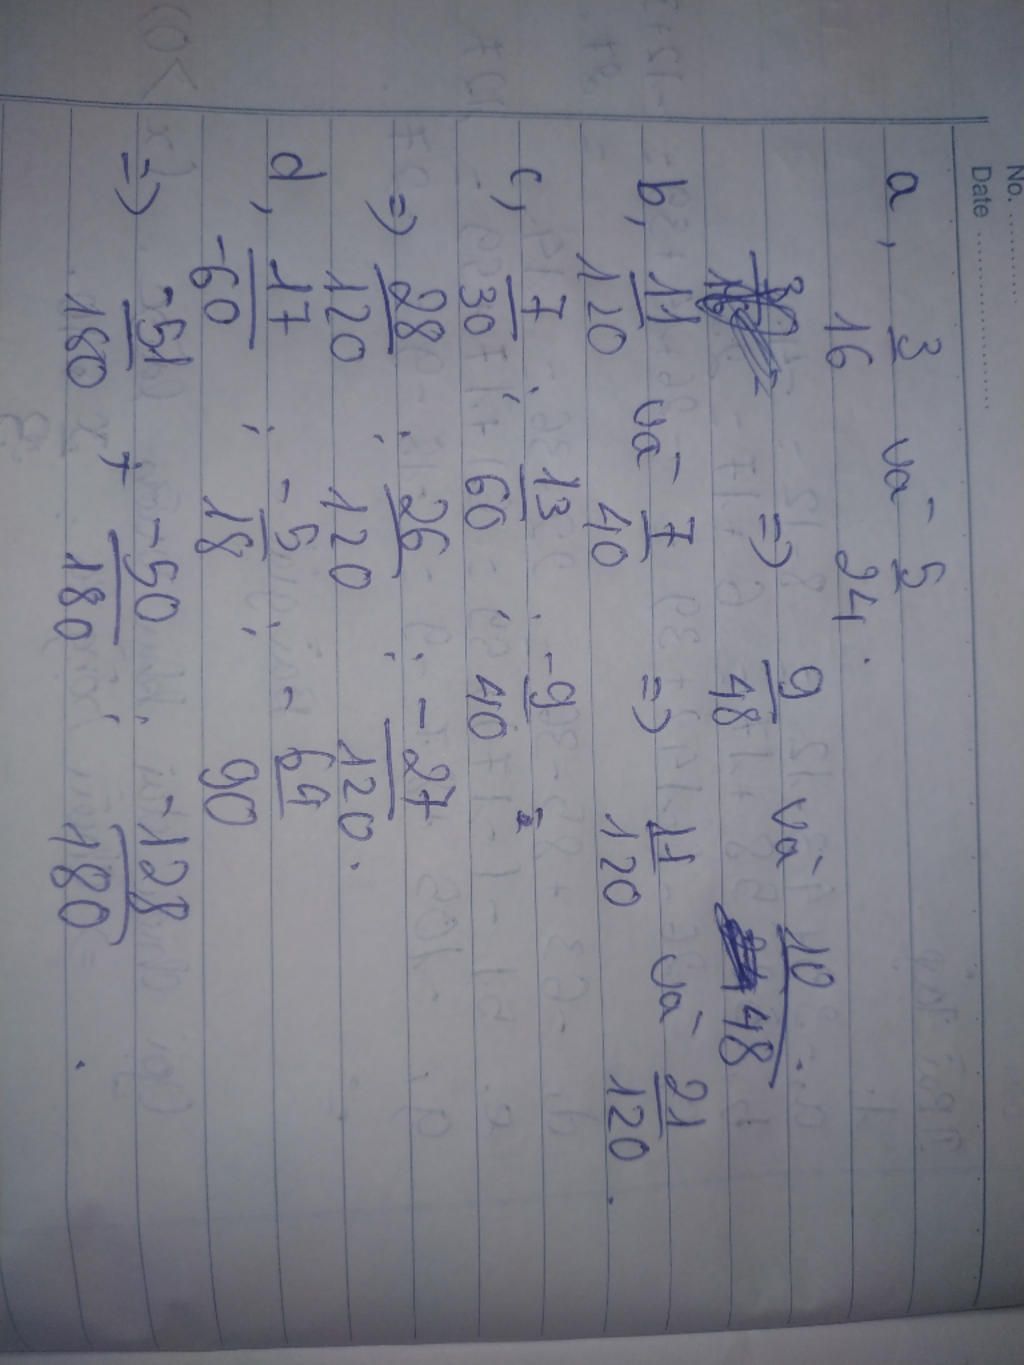 No. ..................
Date ..................
a, 3/16 và 5/24.
=> 9/48 và 10/48
b, 11/120 và 7/40 => 11/120 và 21/120.
c, 7/30 ; 13/60 ; -9/40
=> 28/120 ; 26/120 ; -27/120.
d, 17/-60 ; -5/18 ; -64/90
=> -51/180 ; -50/180 ; -128/180